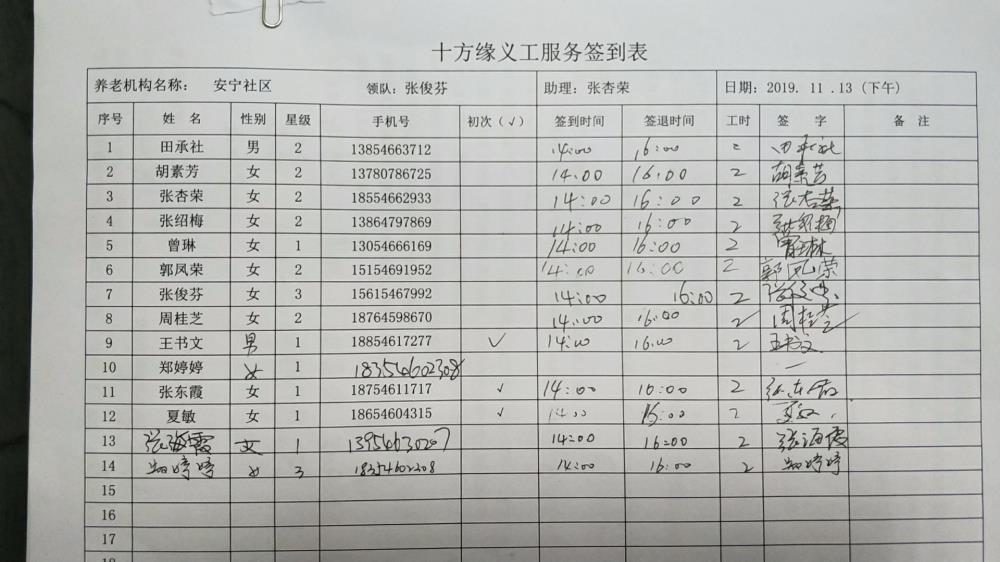 十方缘义工服务签到表
养老机构名称： 安宁社区 领队：张俊芬 助理：张杏荣 日期：2019. 11 .13 (下午)
序号 姓 名 性别 星级 手机号 初次（√） 签到时间 签退时间 工时 签 字 备 注
1 田承社 男 2 13854663712 14:00 16:00 2 田承社
2 胡素芳 女 2 13780786725 14:00 16:00 2 胡素芳
3 张杏荣 女 2 18554662933 14:00 16:00 2 张杏荣
4 张绍梅 女 2 13864797869 14:00 16:00 2 张绍梅
5 曾琳 女 1 13054666169 14:00 16:00 2 曾琳
6 郭凤荣 女 2 15154691952 14:00 16:00 2 郭凤荣
7 张俊芬 女 3 15615467992 14:00 16:00 2 张俊芬
8 周桂芝 女 2 18764598670 14:00 16:00 2 周桂芝
9 王书文 男 1 18854617277 √ 14:00 16:00 2 王书文
10 郑婷婷 女 1 18354602308 —
11 张东霞 女 1 18754611717 √ 14:00 16:00 2 张东霞
12 夏敏 女 1 18654604315 √ 14:00 16:00 2 夏敏
13 张海霞 女 1 13954630207 14:00 16:00 2 张海霞
14 婷婷 女 3 18354602308 14:00 16:00 2 婷婷
15
16
17